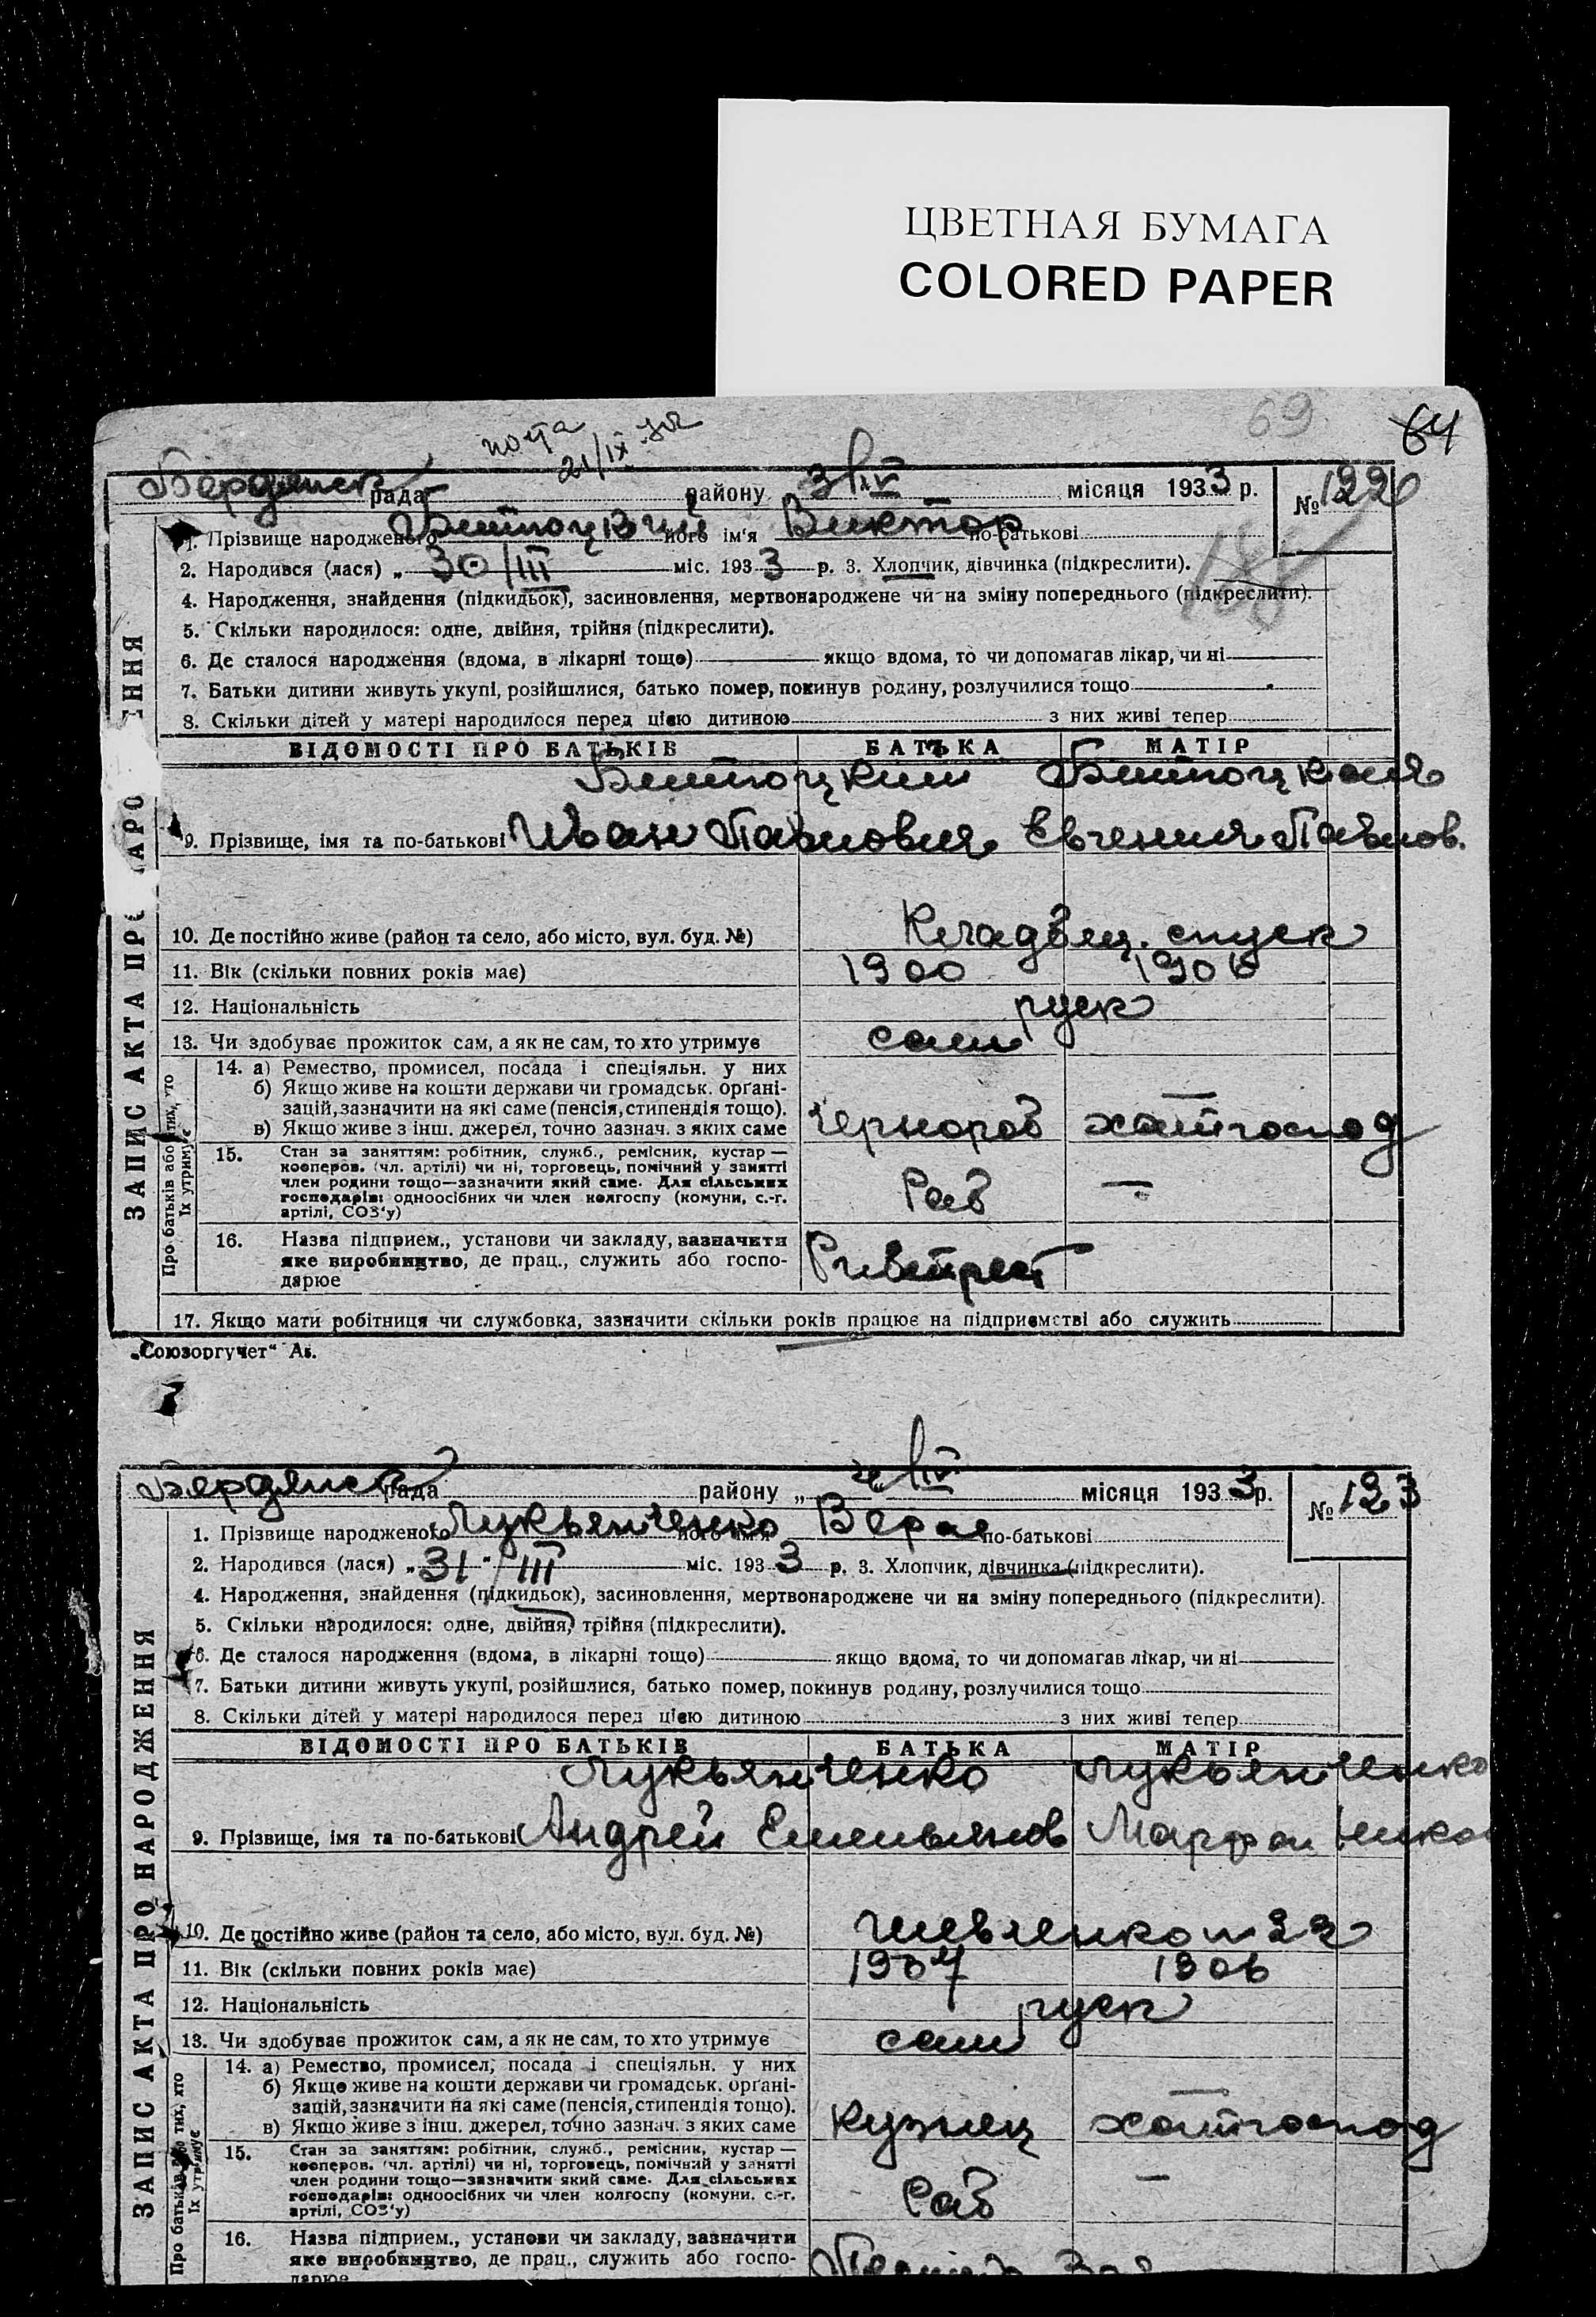 ЦВЕТНАЯ БУМАГА
COLORED PAPER
69 64
21/IX
Бердянск рада району 3/IV місяця 1933 р. № 122
1. Прізвище народженого його ім'я Виктор по-батькові
2. Народився (лася) „ 30/III міс. 1933 р. 3. Хлопчик, дівчинка (підкреслити).
188
4. Народження, знайдення (підкидьок), засиновлення, мертвонароджене чи на зміну попереднього (підкреслити).
5. Скільки народилося: одне, двійня, трійня (підкреслити).
6. Де сталося народження (вдома, в лікарні тощо) якщо вдома, то чи допомагав лікар, чи ні
7. Батьки дитини живуть укупі, розійшлися, батько помер, покинув родину, розлучилися тощо
8. Скільки дітей у матері народилося перед цією дитиною з них живі тепер
ВІДОМОСТІ ПРО БАТЬКІВ БАТЬКА МАТІР
9. Прізвище, імя та по-батькові Иван Павлович Евгения Павлов.
10. Де постійно живе (район та село, або місто, вул. буд. №) Кладбищ. спуск
11. Вік (скільки повних років має) 1900 1906
12. Національність руск
13. Чи здобуває прожиток сам, а як не сам, то хто утримує сам
14. а) Ремество, промисел, посада і спеціяльн. у них
б) Якщо живе на кошти держави чи громадськ. орґані-
зацій, зазначити на які саме (пенсія, стипендія тощо).
в) Якщо живе з інш. джерел, точно зазнач. з яких саме чернораб домгоспод
15. Стан за заняттям: робітник, служб., ремісник, кустар —
кооперов. (чл. артілі) чи ні, торговець, помічний у занятті
член родини тощо—зазначити який саме. Для сільських
господарів: одноосібних чи член колгоспу (комуни, с.-г.
артілі, СОЗ'у) Раб —
16. Назва підприєм., установи чи закладу, зазначити
яке виробництво, де прац., служить або госпо-
дарює
17. Якщо мати робітниця чи службовка, зазначити скільки років працює на підприємстві або служить
ЗАПИС АКТА ПРО
Про батьків або тих, хто їх утримує
„Союзоргучет"
Бердянск рада району „ 4/IV місяця 1933 р. № 123
1. Прізвище народженого Лукьянченко його ім'я Вера по-батькові
2. Народився (лася) „31" /III міс. 1933 р. 3. Хлопчик, дівчинка (підкреслити).
4. Народження, знайдення (підкидьок), засиновлення, мертвонароджене чи на зміну попереднього (підкреслити).
5. Скільки народилося: одне, двійня, трійня (підкреслити).
6. Де сталося народження (вдома, в лікарні тощо) якщо вдома, то чи допомагав лікар, чи ні
7. Батьки дитини живуть укупі, розійшлися, батько помер, покинув родину, розлучилися тощо
8. Скільки дітей у матері народилося перед цією дитиною з них живі тепер
ВІДОМОСТІ ПРО БАТЬКІВ БАТЬКА МАТІР
Лукьянченко Лукьянченко
9. Прізвище, імя та по-батькові Андрей Емельянов Марфа
10. Де постійно живе (район та село, або місто, вул. буд. №)
11. Вік (скільки повних років має) 1907 1906
12. Національність руск
13. Чи здобуває прожиток сам, а як не сам, то хто утримує сам
14. а) Ремество, промисел, посада і спеціяльн. у них
б) Якщо живе на кошти держави чи громадськ. орґані-
зацій, зазначити на які саме (пенсія, стипендія тощо).
в) Якщо живе з інш. джерел, точно зазнач. з яких саме кузнец домгоспод
15. Стан за заняттям: робітник, служб., ремісник, кустар —
кооперов. (чл. артілі) чи ні, торговець, помічний у занятті
член родини тощо—зазначити який саме. Для сільських
господарів: одноосібних чи член колгоспу (комуни, с.-г.
артілі, СОЗ'у) Раб —
16. Назва підприєм., установи чи закладу, зазначити
яке виробництво, де прац., служить або госпо-
дарює
ЗАПИС АКТА ПРО НАРОДЖЕННЯ
Про батьків або тих, хто їх утримує